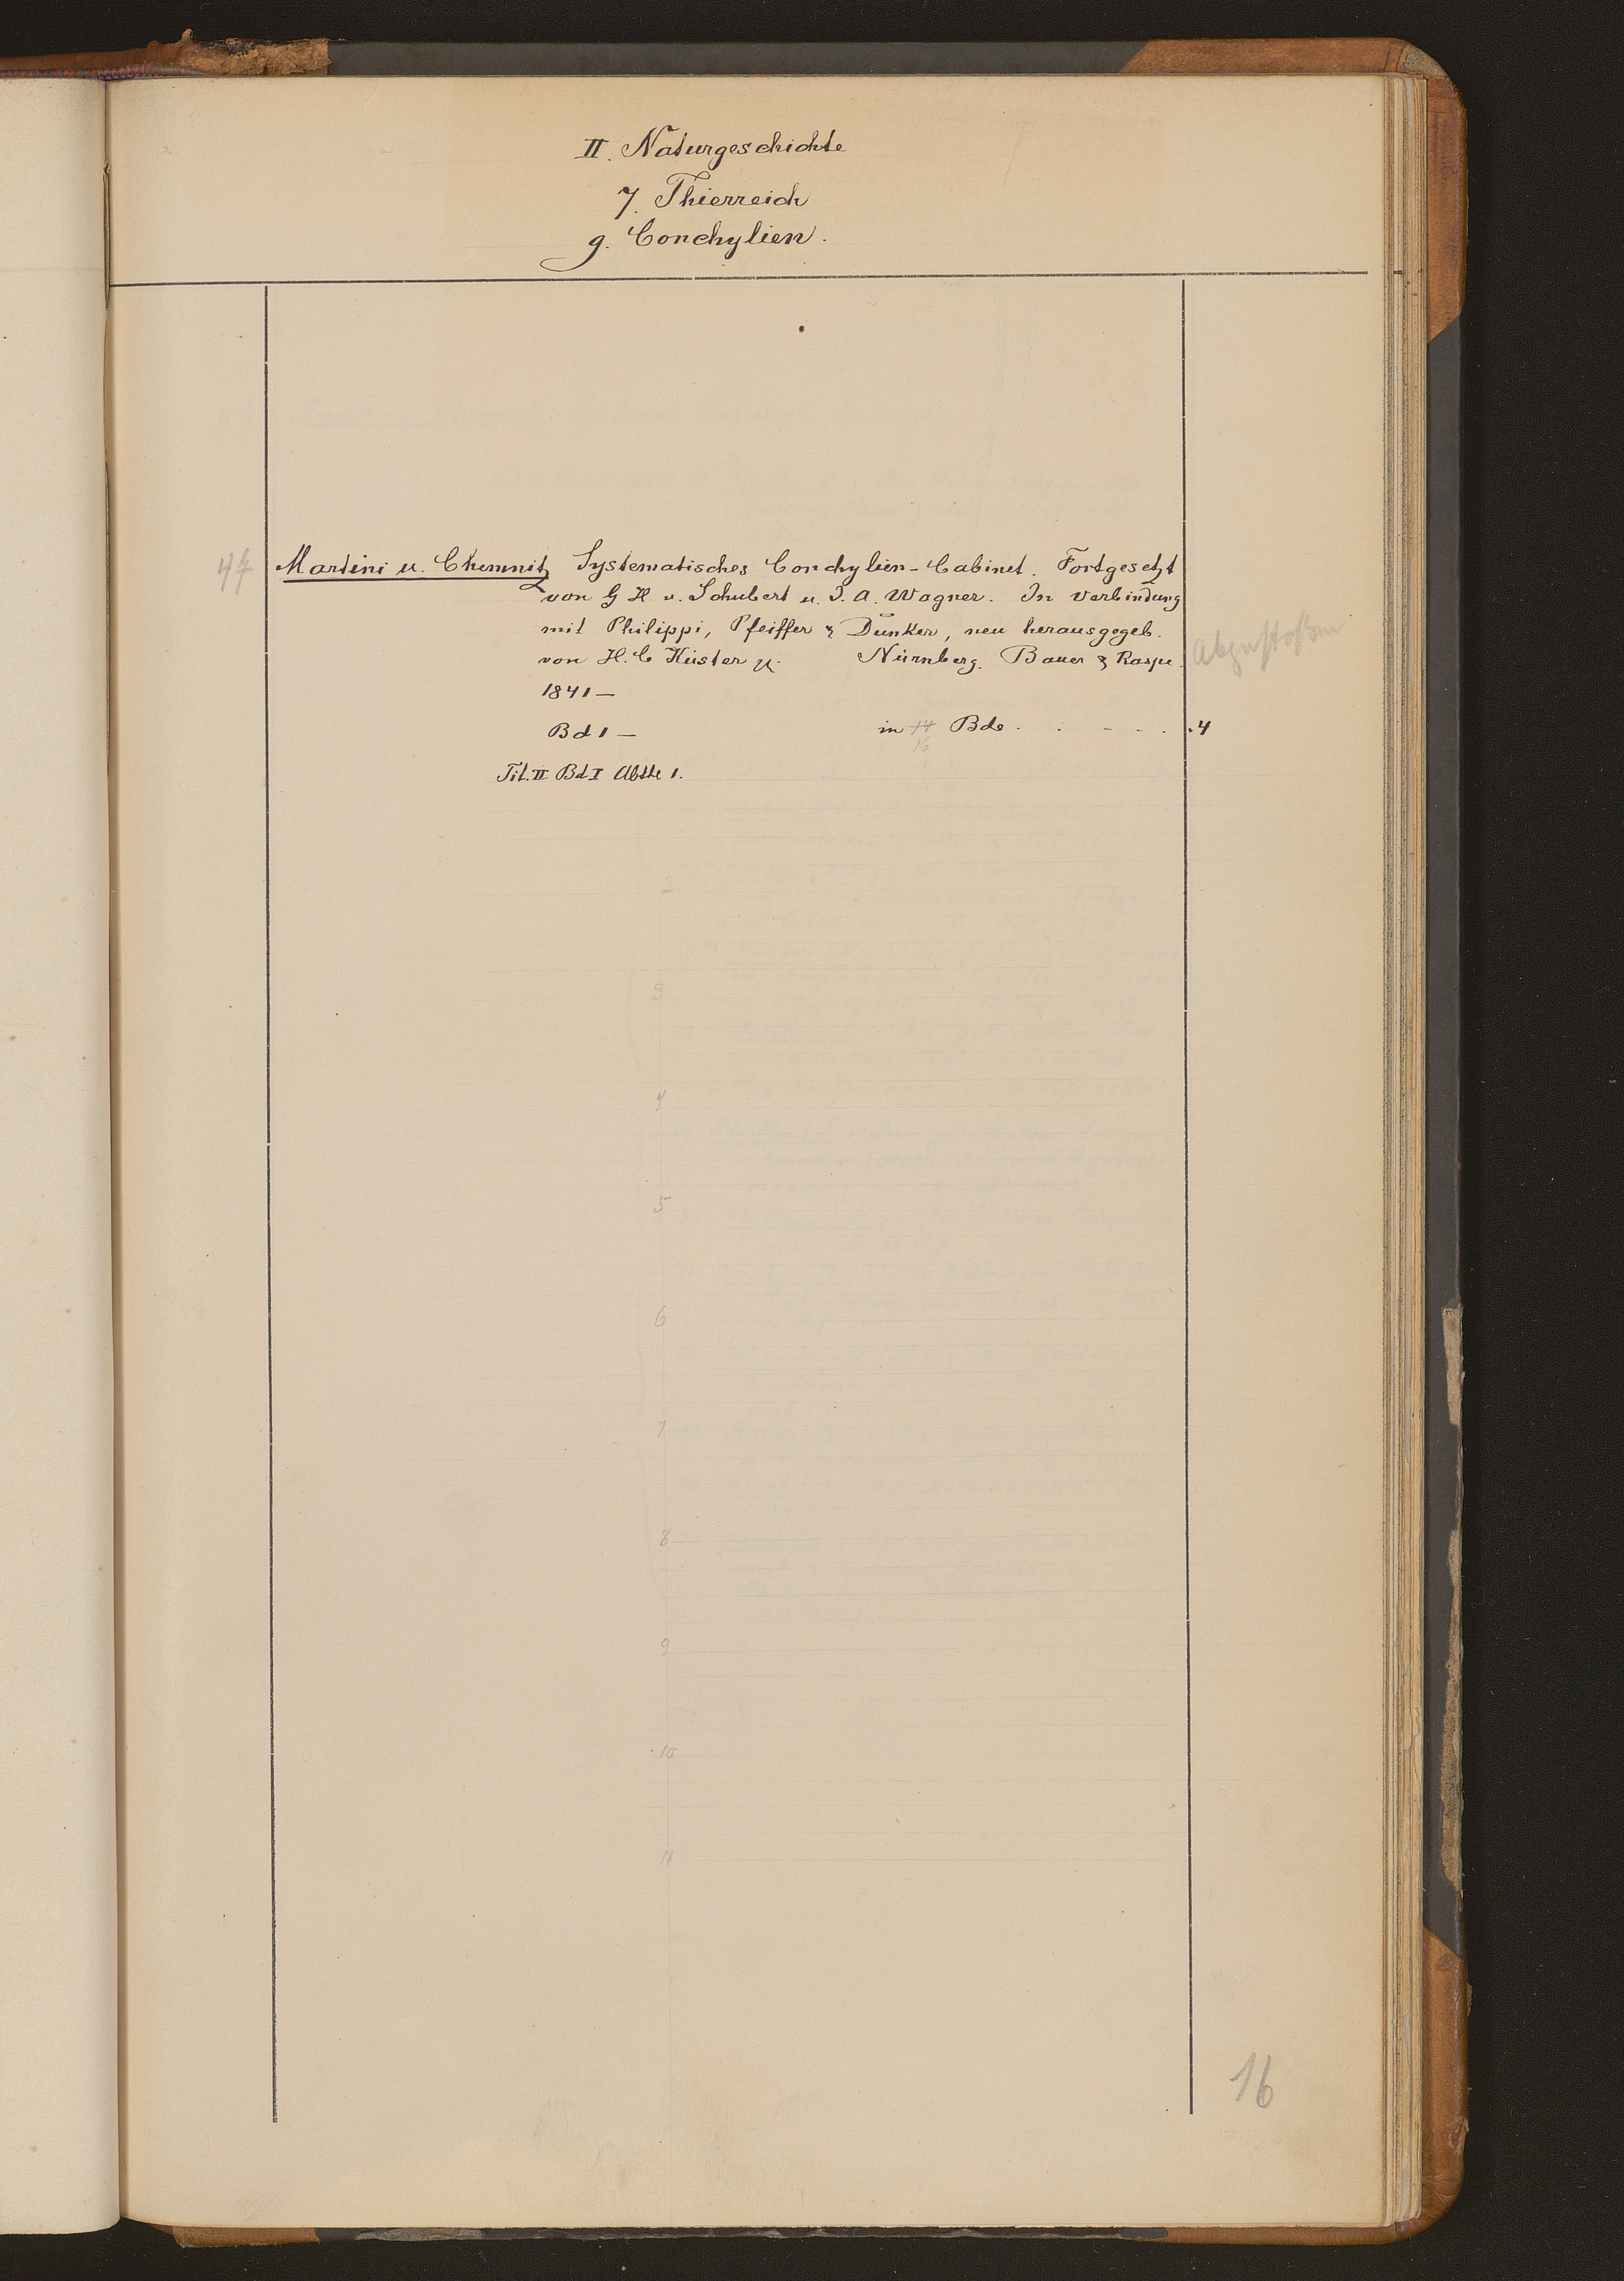 II. Naturgeschichte
7. Thierreich
g. Conchylien.
47 Martini u. Chemnitz Systematisches Conchylien-Cabinet. Fortgesetzt
von G H v. Schubert u. J. A. Wagner. In Verbindung
mit Philippi, Pfeiffer & Dunker, neu herausgegeb.
von H. C Küster u. Nürnberg. Bauer & Raspe.
Abzustoßen
1841 —
Bd 1 — in 14 Bde . . - - . . 4
16
Tit. II Bd I Abthl 1.
2
3
4
5
6
7
8
9
10
11
16